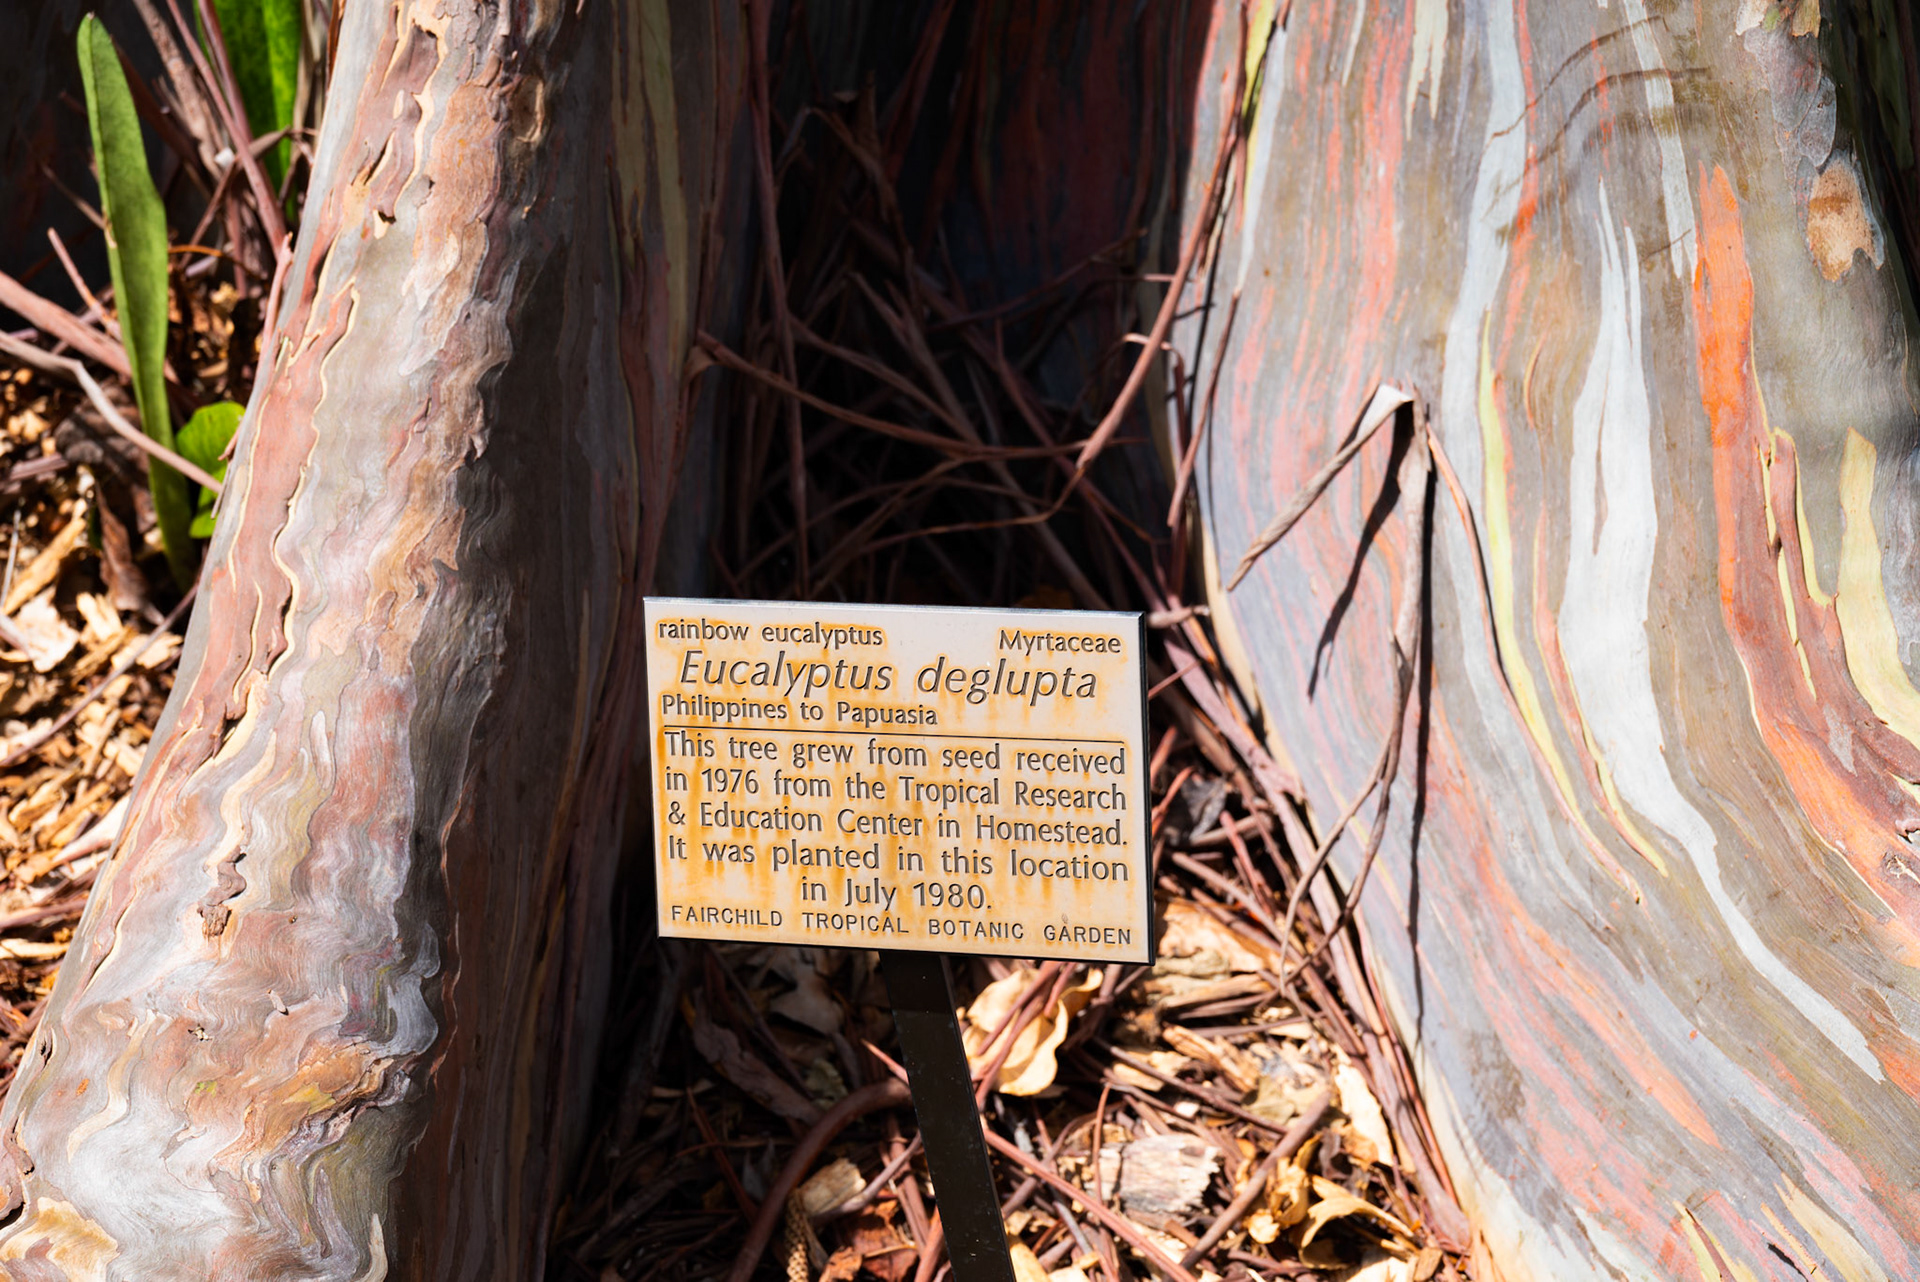 rainbow eucalyptus Myrtaceae
Eucalyptus deglupta
Philippines to Papuasia
This tree grew from seed received
in 1976 from the Tropical Research
& Education Center in Homestead.
It was planted in this location
in July 1980.
FAIRCHILD TROPICAL BOTANIC GARDEN